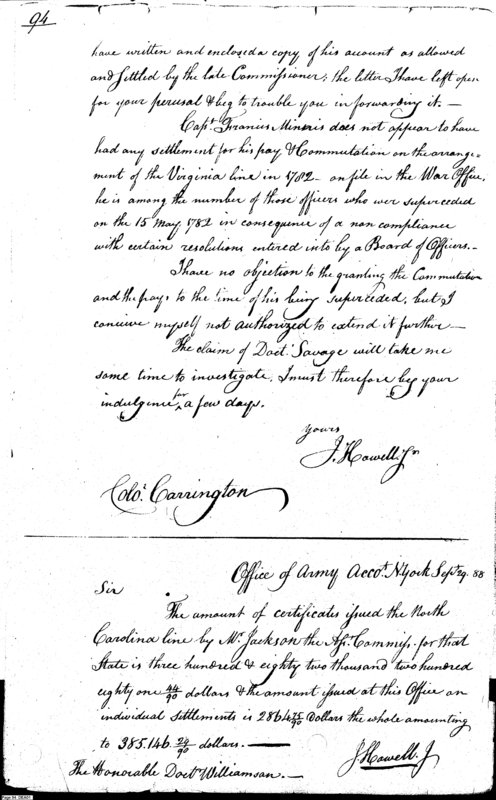 94
have written and enclosed a copy of his account as allowed
and settled by the late Commissioner; the letter I have left open
for your perusal & beg to trouble you in forwarding it. —
Capt. Francis Minnis does not appear to have
had any settlement for his pay & Commutation on the arrange-
ment of the Virginia line in 1782 on file in the War Office,
he is among the number of those officers who wer superceded
on the 15 May 1782 in consequence of a non compliance
with certain resolutions entered into by a Board of Officers. —
I have no objection to the granting the Commutation
and the pay to the time of his being superceded, but I
conceive myself not authorized to extend it further —
The claim of Doct. Savage will take me
some time to investigate, I must therefore beg your
indulgence for a few days.
yours
J. Howell Jr
Colo. Carrington
Office of Army Accots. N York Sept 29. 88
Sir
The amount of certificates issued the North
Carolina line by Mr. Jackson the Ass. Commiss. for that
State is three hundred & eighty two thousand two hundred
eighty one 44/90 dollars & the amount issued at this Office on
individual settlements is 2864 75/90 Dollars the whole amounting
to 385.146 24/90 dollars. —
J Howell. J
The Honorable Doctr. Williamson. —